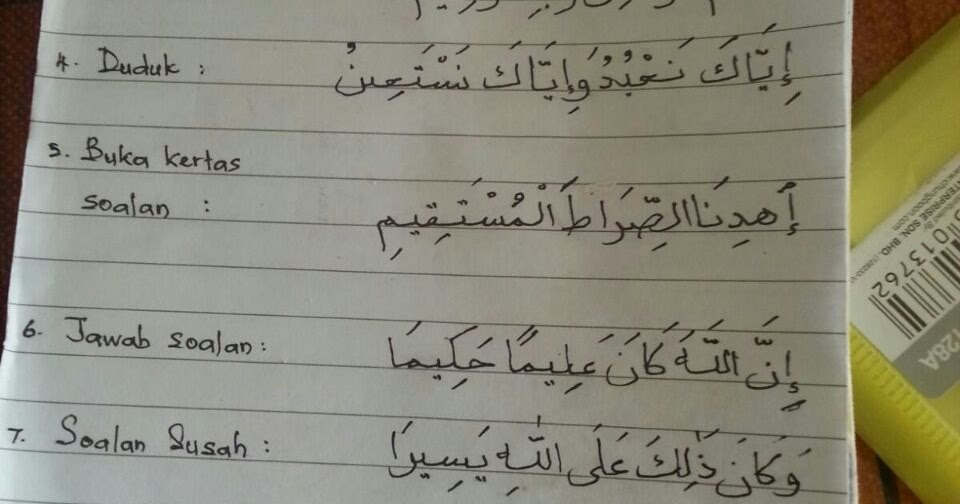 4. Duduk : إِيَّاكَ نَعْبُدُ وَإِيَّاكَ نَسْتَعِينُ
5. Buka kertas
soalan : إِهدِنَا الصِّرَاطَ الْمُسْتَقِيمِ
6. Jawab soalan : إِنَّ اللَّهَ كَانَ عَلِيمًا حَكِيمَا
7. Soalan Susah : وَكَانَ ذَٰلِكَ عَلَى اللَّهِ يَسِيرَا
ENTERPRISE SDN. BHD.
013762
128A